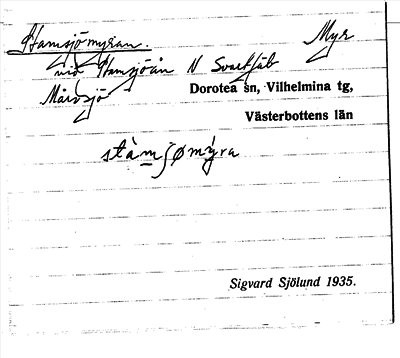 Stamsjömyran. Myr
vid Stamsjöån N Svartsjöb
Mårdsjö
Dorotea sn, Vilhelmina tg,
Västerbottens län
stàmʃømýra
Sigvard Sjölund 1935.